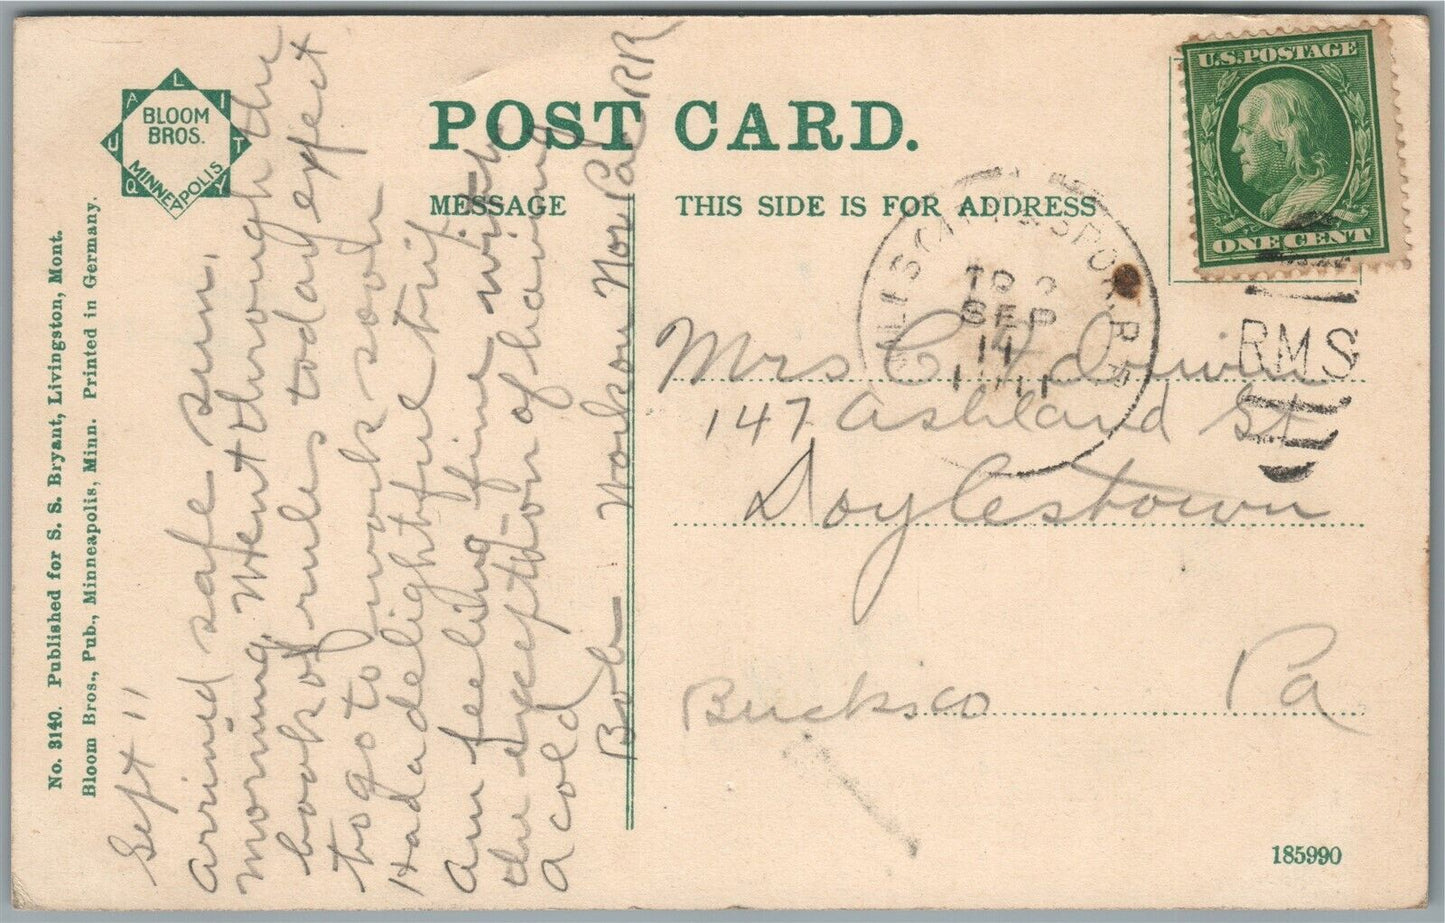 BLOOM
BROS.
QUALITY
MINNEAPOLIS
POST CARD.
MESSAGE
THIS SIDE IS FOR ADDRESS
U.S. POSTAGE
ONE CENT
No. 3140. Published for S. S. Bryant, Livingston, Mont.
Bloom Bros., Pub., Minneapolis, Minn. Printed in Germany.
Sept 11
Arrived safe sun.
morning. Went through the
book of rules today expect
to go to work soon
Had a delightful trip
Am feeling fine with
the exception of having
a cold
Bob
Nor Pac RR
TR 2
SEP
14
RMS
Mrs C H
147 Ashland St
Doylestown
Bucks co Pa
185990